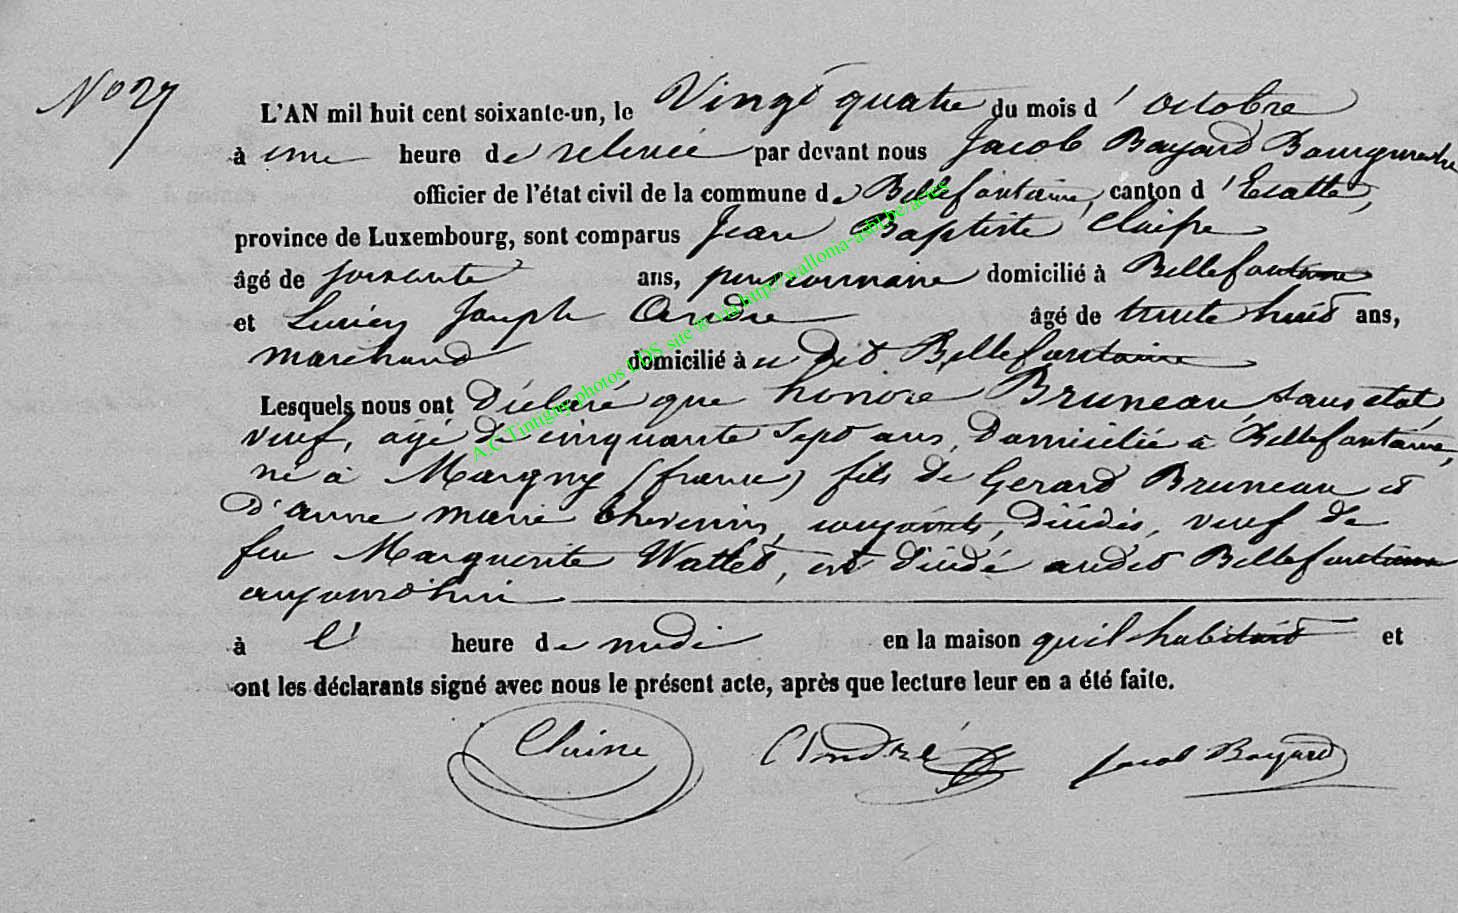 No 27
L'AN mil huit cent soixante-un, le Vingt quatre du mois d'octobre
à une heure de relevée par devant nous Jacob Bayard Bourgmestre
officier de l'état civil de la commune de Bellefontaine, canton d'Etalle,
province de Luxembourg, sont comparus Jean Baptiste
âgé de soixante ans, pensionnaire domicilié à Bellefontaine
et Lucien Joseph André âgé de trente huit ans,
marchand domicilié à u dit Bellefontaine
Lesquels nous ont Déclaré que honoré Bruneau, sans état,
veuf, agé de cinquante Sept ans, Domicilié à Bellefontaine,
né à Margny (france) fils de Gerard Bruneau et
D'anne marie thevenin, conjoints, Décédés, veuf de
feu Marguerite Wattet, est décédé audit Bellefontaine
aujourdhui
à l' heure de midi en la maison quil habitait et
ont les déclarants signé avec nous le présent acte, après que lecture leur en a été faite.
André Jacob Bayard
A.C Tintigny photos LDS site gvia http://wallonia-asbl.be/actes